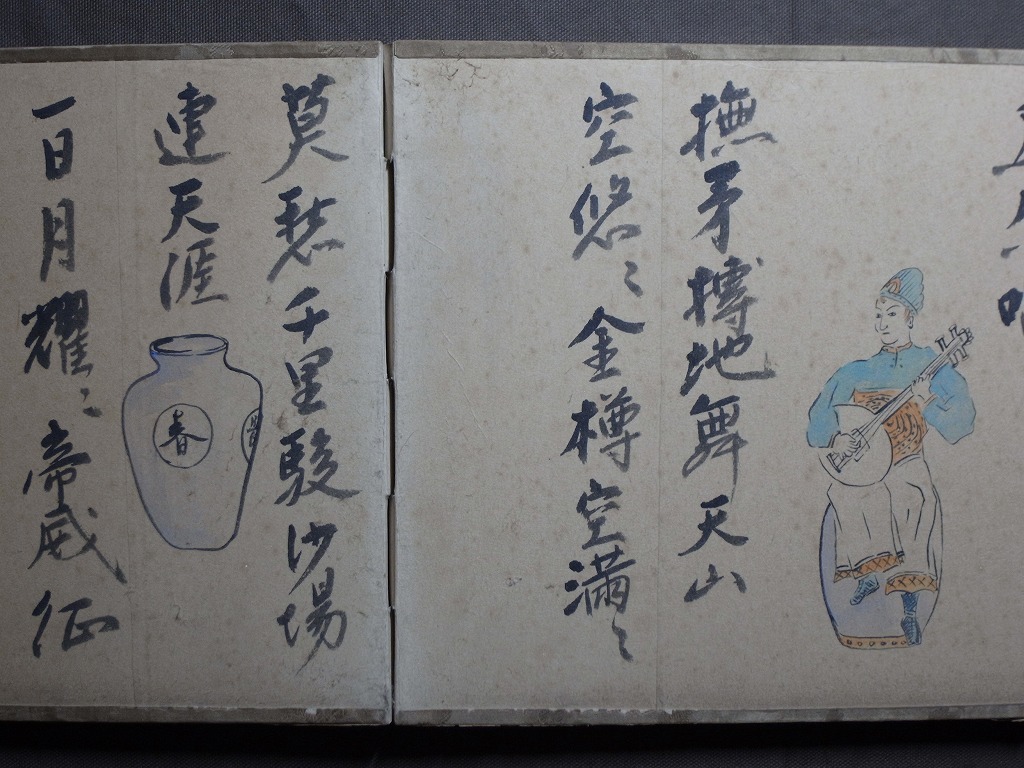 撫矛搏地舞天山
空悠〻金樽空滿〻
莫愁千里駿沙場
連天涯
春
一日月耀〻帝威征